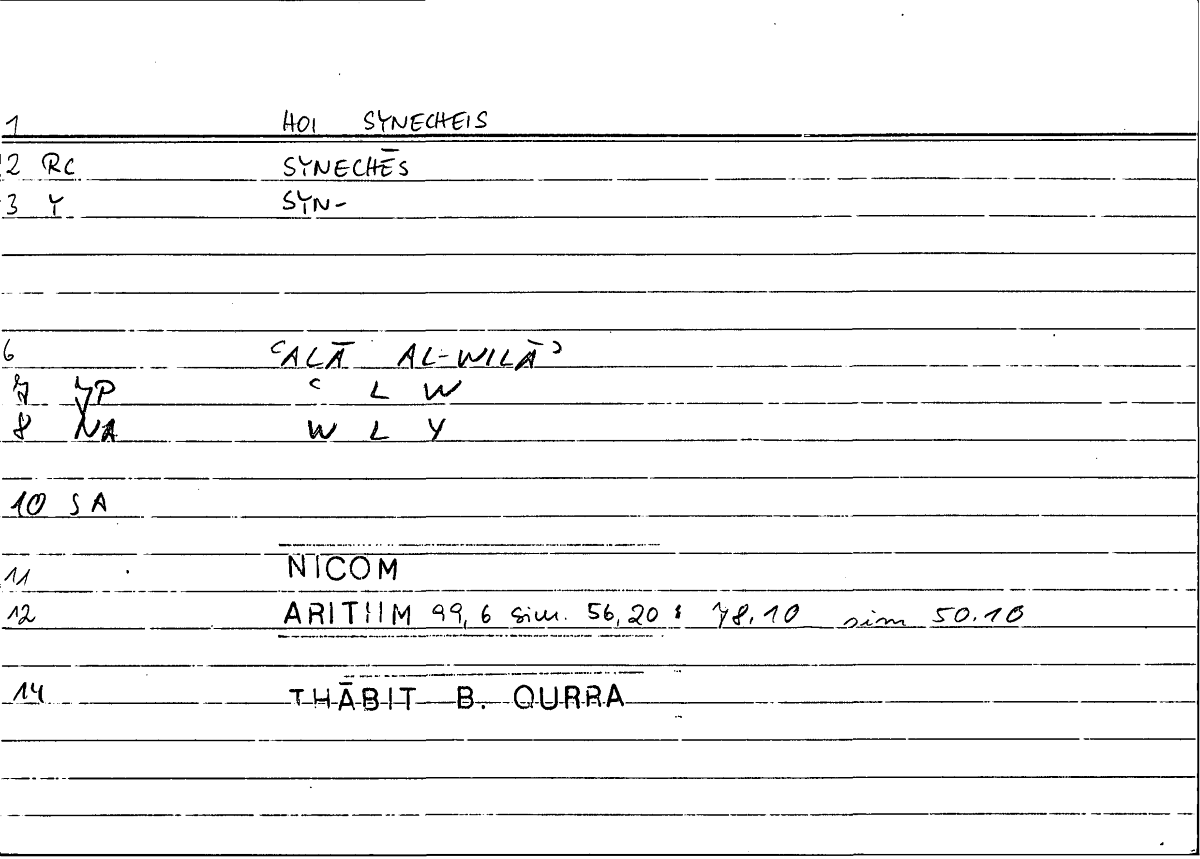 1 HOI SYNECHEIS
2 RC SYNECHĒS
3 Y SYN-
6 ʿALĀ AL-WILĀʾ
7 JP ʿ L W
8 NA W L Y
10 SA
11 NICOM
12 ARITHM 99,6 sim. 56,20 : 78.10 sim 50.10
14 THĀBIT B. QURRA